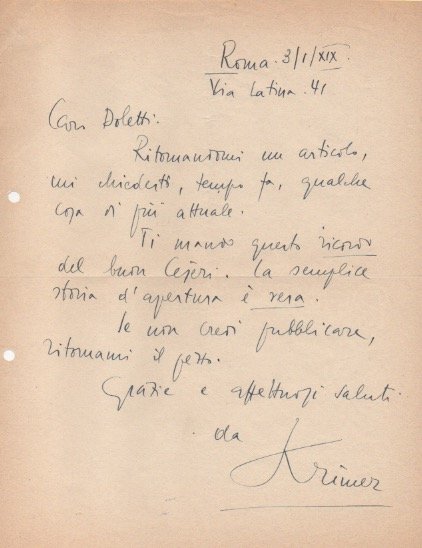 Roma. 3/1/XIX.
Via Latina. 41
Caro Doletti.
Ritornandomi un articolo,
mi chiedesti, tempo fa, qualche
cosa di più attuale.
Ti mando questo ricordo
del buon Ceseri. La semplice
storia d'apertura è vera.
Se non credi pubblicare,
ritornami il pezzo.
Grazie e affettuosi saluti
da
Krimer